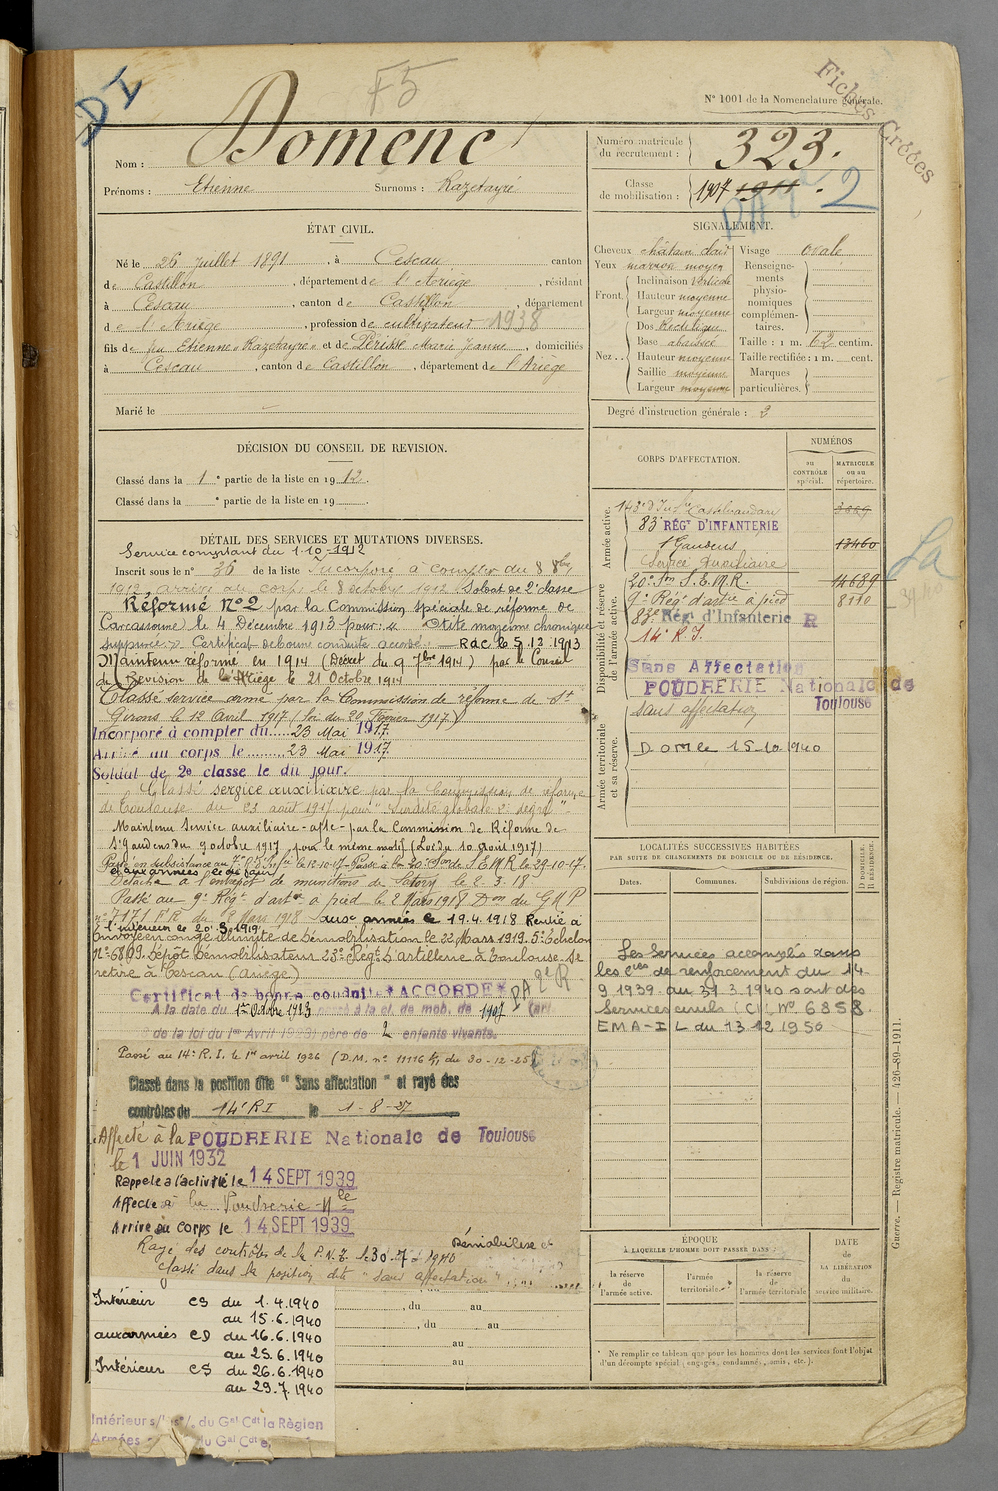 DI
F5
Fiches Créées
N° 1001 de la Nomenclature générale.
Nom : Domenc
Prénoms : Etienne Surnoms : Razetayré
Numéro matricule du recrutement : 323.
Classe de mobilisation : 1907 1911 . 2
PA 2e
ÉTAT CIVIL.
Né le 26 juillet 1891 , à Cescau canton
de Castillon , département de l'Ariège , résidant
à Cescau , canton de Castillon , département
de l'Ariège , profession de cultivateur 1938
fils de feu Etienne "Razetayré" et de Périssé Marie Jeanne , domiciliés
à Cescau , canton de Castillon , département de l'Ariège
Marié le
SIGNALEMENT.
Cheveux châtain clair
Yeux marron moyen
Front.
Inclinaison Verticale
Hauteur moyenne
Largeur moyenne
Nez . .
Dos Rectiligne
Base abaissée
Hauteur moyenne
Saillie moyenne
Largeur moyenne
Visage ovale
Renseignements physionomiques complémentaires.
Taille : 1 m. 62 centim.
Taille rectifiée : 1 m. cent.
Marques particulières.
Degré d'instruction générale : 2
DÉCISION DU CONSEIL DE REVISION.
Classé dans la 1e partie de la liste en 1912.
Classé dans la e partie de la liste en 19
DÉTAIL DES SERVICES ET MUTATIONS DIVERSES.
Service comptant du 1-10-1912
Inscrit sous le n° 36 de la liste Incorporé à compter du 8 8bre
1912, arrivé au corps le 8 octobre 1912 Soldat de 2e classe
Réformé N°2 par la Commission spéciale de réforme de
Carcassonne le 4 Décembre 1913 pour : « Otite moyenne chronique
suppurée ». Certificat de bonne conduite accordé. RAC le 5.12.1913
Maintenu réformé en 1914 (Décret du 9 7bre 1914) par le Conseil
de Revision de l'Ariège le 21 Octobre 1914
Classé service armé par la Commission de réforme de St
Girons le 12 Avril 1917 (loi du 20 Février 1917)
Incorporé à compter du 23 Mai 1917.
Arrivé au corps le 23 Mai 1917.
Soldat de 2e classe le dit jour.
Classé service auxiliaire par la Commission de réforme
de Toulouse du 23 août 1917 pour "Surdité globale 2e degré".
Maintenu Service auxiliaire - apte - par la Commission de Réforme de
St Gaudens du 9 octobre 1917 pour le même motif (Loi du 10 août 1917)
le 12-10-17 - Passé à la 20e Son de S.E.M.R. le 29-10-17.
et aux armées le dit jour
Détaché à l'entrepôt de munitions de Satory le 2-3-18.
Passé au 9e Régt d'artie à pied le 2 Mars 1918 Don du GMP
aux armées le 19.4.1918 Rentré à
l'intérieur le 20.3.1919
Envoyé en congé illimité de Démobilisation le 22 Mars 1919. 5e Echelon
N° 6869. Dépôt Démobilisateur 23e Régt d'artillerie à Toulouse. Se
retire à Cescau (Ariège)
Certificat de bonne conduite "ACCORDÉ"
PA 2e R
A la date du 1er Octobre 1923 passé à la cl. de mob. de 1907 (art
de la loi du 1er Avril 1923) père de 2 enfants vivants.
Passé au 14e R.I. le 1er avril 1926 (D.M. n° 11116 du 30-12-25)
Classé dans la position dite "Sans affectation" et rayé des
contrôles du 14e RI le 1-8-27
Affecté à la POUDRERIE Nationale de Toulouse
le 1 JUIN 1932
Rappelé à l'activité le 14 SEPT 1939
Affecté à la Poudrerie Nle
Arrivé au corps le 14 SEPT 1939
Rayé des contrôles de la P.N.T. le 30-7-1940 Démobilisé et
classé dans la position dite "sans affectation"
Intérieur CS du 1.4.1940
au 15.6.1940
aux armées CD du 16.6.1940
au 25.6.1940
Intérieur CS du 26.6.1940
au 29.7.1940
du Gal Cdt la Région
Armées du Gal Cdt
, du au
, du au
au
au
CORPS D'AFFECTATION.
NUMÉROS
au CONTRÔLE spécial.
MATRICULE ou au répertoire.
Armée active.
143e d'Infie Castelnaudary 3889
83e RÉGT D'INFANTERIE
St Gaudens 13460
Service Auxiliaire
Disponibilité et réserve de l'armée active.
20e Son S.E.M.R. 14689
9e Régt d'artie à pied 8110
83e Régt d'Infanterie R
14e R.I.
Sans Affectation
POUDRERIE Nationale de
Toulouse
sans affectation
Armée territoriale et sa réserve.
DOM le 15-10-1940
La
LOCALITÉS SUCCESSIVES HABITÉES
PAR SUITE DE CHANGEMENTS DE DOMICILE OU DE RÉSIDENCE.
Dates. Communes. Subdivisions de région. D DOMICILE. R RÉSIDENCE.
Les Services accomplis dans
les Cies de renforcement du 14-
9 1939 au 31 3 1940 sont des
Services civils (CM N° 6858.
EMA-IL du 13 12 1950
ÉPOQUE
À LAQUELLE L'HOMME DOIT PASSER DANS :
la réserve de l'armée active.
l'armée territoriale.
la réserve de l'armée territoriale
DATE de LA LIBÉRATION du service militaire.
* Ne remplir ce tableau que pour les hommes dont les services font l'objet
d'un décompte spécial (engagés, condamnés, omis, etc.).
Guerre. — Registre matricule. — 426-89-1911.